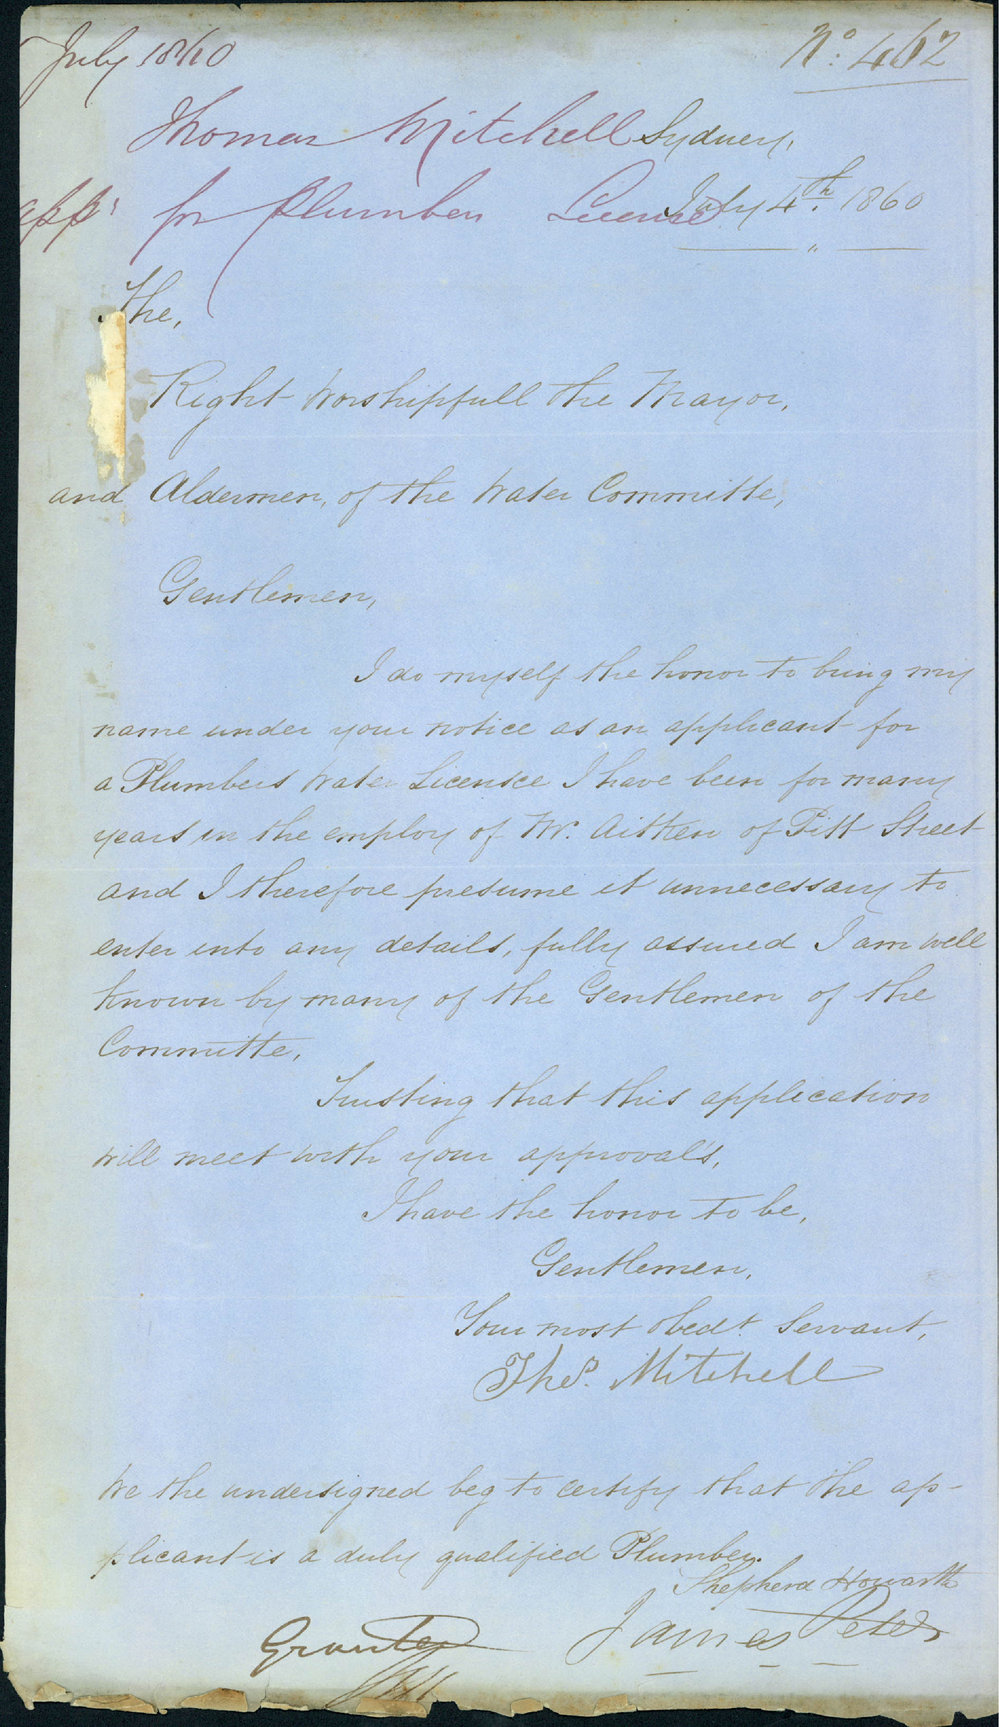 July 1860
No: 462
Thomas Mitchell
appn for Plumbers License
Sydney,
July 4th. 1860
The,
Right Worshipfull the Mayor,
and Aldermen, of the Water Committe,
Gentlemen,
I do myself the honor to bring my
name under your notice as an applicant for
a Plumbers Water Licensce I have been for many
years in the employ of Mr. Aitken of Pitt Street
and I therefore presume it unnecessary to
enter into any details, fully assured I am well
known by many of the Gentlemen of the
Committe.
Trusting that this application
will meet with your approval's,
I have the honor to be,
Gentlemen,
Your most obedt. Servant,
Thos. Mitchell
We the undersigned beg to certify that the ap-
plicant is a duly qualified Plumber.
Shepherd Howarth
James Peters
Granted